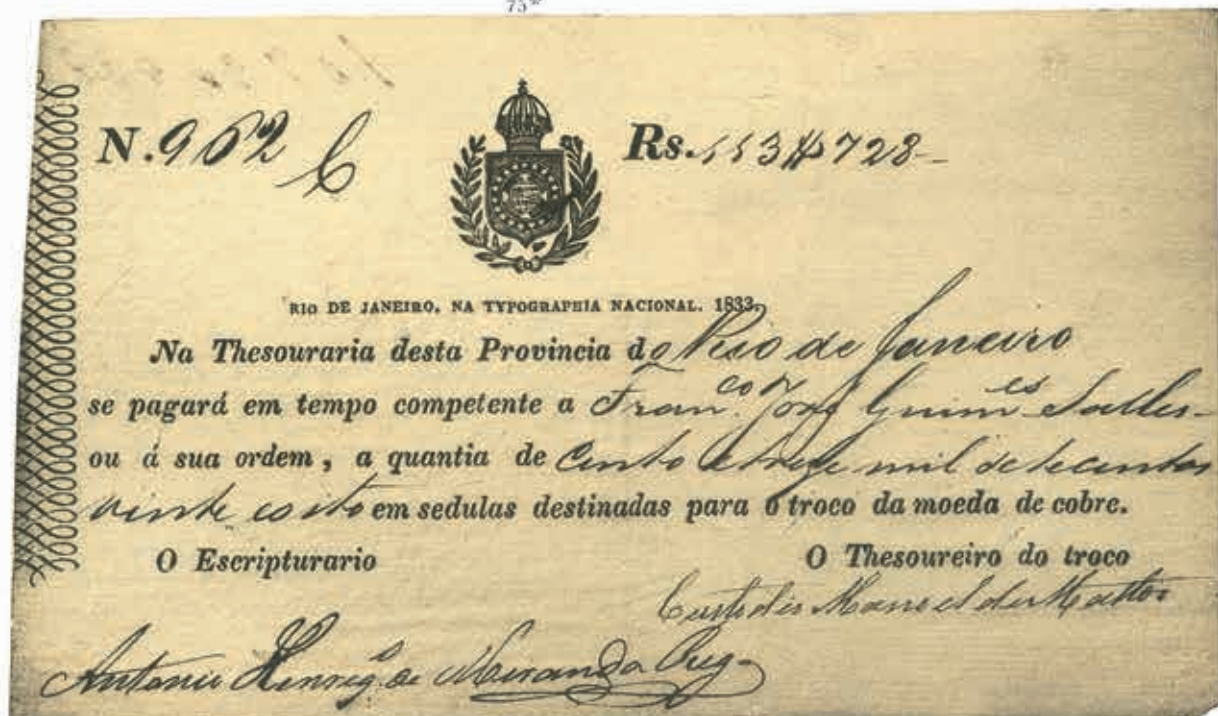 N. 962 C Rs. 113$728
RIO DE JANEIRO, NA TYPOGRAPHIA NACIONAL. 1833.
Na Thesouraria desta Provincia do Rio de Janeiro
se pagará em tempo competente a Fran.co José Guim.es Salles
ou á sua ordem, a quantia de Cento e treze mil setecentos
vinte e oito em sedulas destinadas para o troco da moeda de cobre.
O Escripturario O Thesoureiro do troco
Custodio Manoel de Mattos
Antonio Henriq.s de Miranda